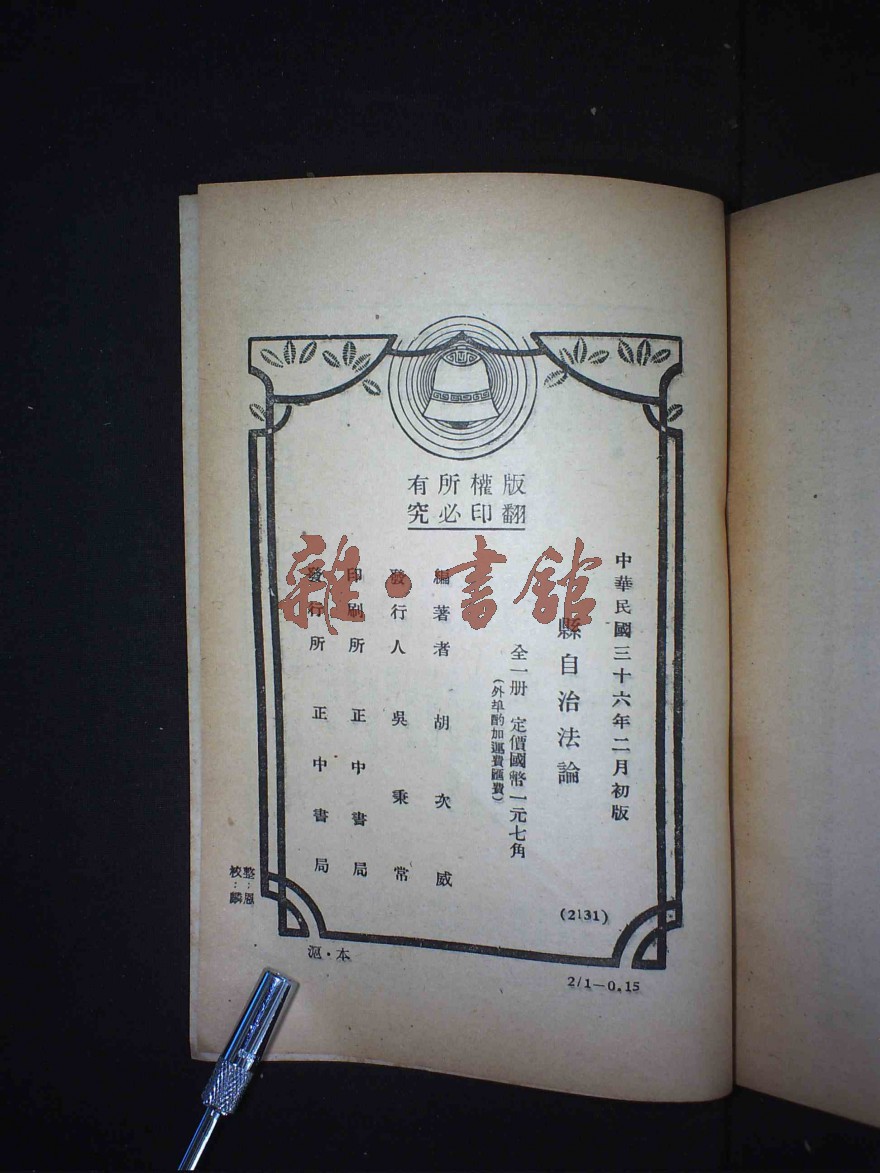 版權所有
翻印必究
中華民國三十六年二月初版
縣自治法論
全一册 定價國幣一元七角
(外埠酌加運費匯費)
編著者 胡次威
發行人 吳秉常
印刷所 正中書局
發行所 正中書局
(2131)
整：恩
校：麟
滬·本
2/1—0.15
雜·書館